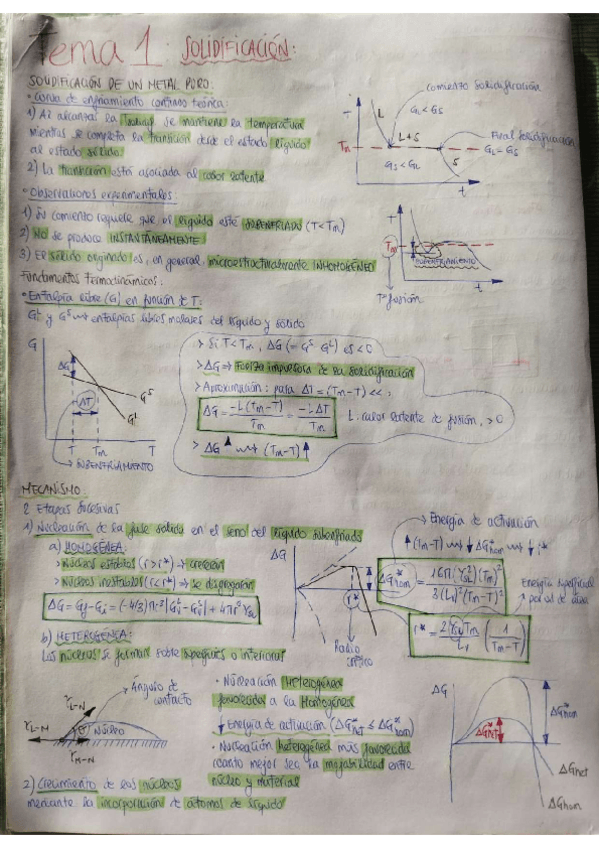 Tema 1: SOLIDIFICACIÓN:
SOLIDIFICACIÓN DE UN METAL PURO:
• Curva de enfriamiento continuo teórica:
1) Al alcanzar la Tsolid se mantiene la temperatura
mientras se completa la transición desde el estado líquido
al estado sólido.
2) La transición está asociada al calor latente
T
L
L+S
S
Tm
t
Comienzo Solidificación
GL < GS
GS < GL
Final Solidificación
GL = GS
• Observaciones experimentales:
1) Su comienzo requiere que el líquido esté SUBENFRIADO (T<Tm)
2) No se produce INSTANTÁNEAMENTE
3) El sólido originado es, en general, microestructuralmente INHOMOGÉNEO
T
Tm
SUBENFRIAMIENTO
t
Tª fusión
Fundamentos Termodinámicos:
• Entalpía libre (G) en función de T:
G^L y G^S → entalpías libres molares del líquido y sólido
G
ΔG
ΔT
G^S
G^L
T Tm T
→ SUBENFRIAMIENTO
> Si T<Tm, ΔG (= G^S G^L) es <0
> ΔG → Fuerza impulsora de la solidificación
> Aproximación: para ΔT = (Tm-T) <<,
ΔG = -L(Tm-T)/Tm = -LΔT/Tm
L: calor latente de fusión, >0
> ΔG ↑ → (Tm-T) ↑
MECANISMO:
2 Etapas Sucesivas
1) Nucleación de la fase sólida en el seno del líquido subenfriado
a) HOMOGÉNEA:
> Núcleos estables (r>r*) → crecerán
> Núcleos inestables (r<r*) → se disgregarán
ΔG = Gf-Gi = (-4/3)πr³|Gv-Gv| + 4πr²γSL
ΔG
r*
Radio crítico
→ Energía de activación
↑(Tm-T) → ↓ΔG*hom → ↓r*
ΔG*hom = 16π(γSL)³(Tm)²/3(Lv)²(Tm-T)²
Energía superficial
por ud de área
r* = 2γSL Tm/Lv (1/Tm-T)
b) HETEROGÉNEA:
Los núcleos se forman sobre superficies o interiores
γL-N
γL-M
γM-N
NÚCLEO
Ángulo de
contacto
• Nucleación Heterogénea
favorecida a la Homogénea
↓ Energía de activación (ΔG*het ≤ ΔG*hom)
• Nucleación heterogénea más favorecida
cuanto mejor sea la mojabilidad entre
núcleo y material
ΔG
ΔG*hom
ΔG*het
ΔGhet
ΔGhom
2) Crecimiento de los núcleos
mediante la incorporación de átomos de líquido